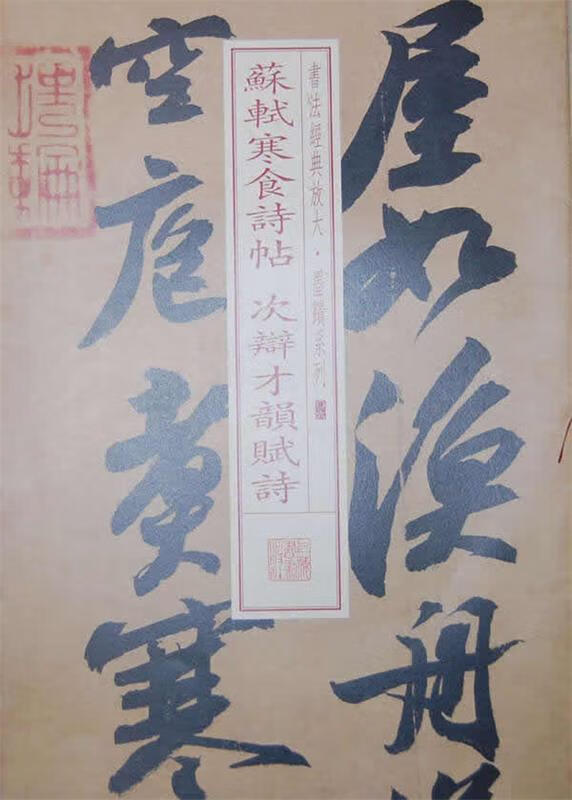 屋如漁舟濛
書法經典放大·墨蹟系列
蘇軾寒食詩帖 次辯才韻賦詩
空庖煮寒